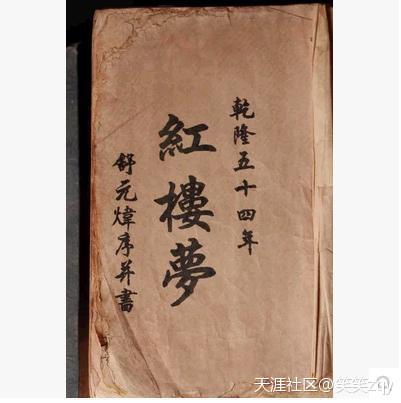 乾隆五十四年
紅樓夢
舒元煒序并書
天涯社区@笑笑zqy